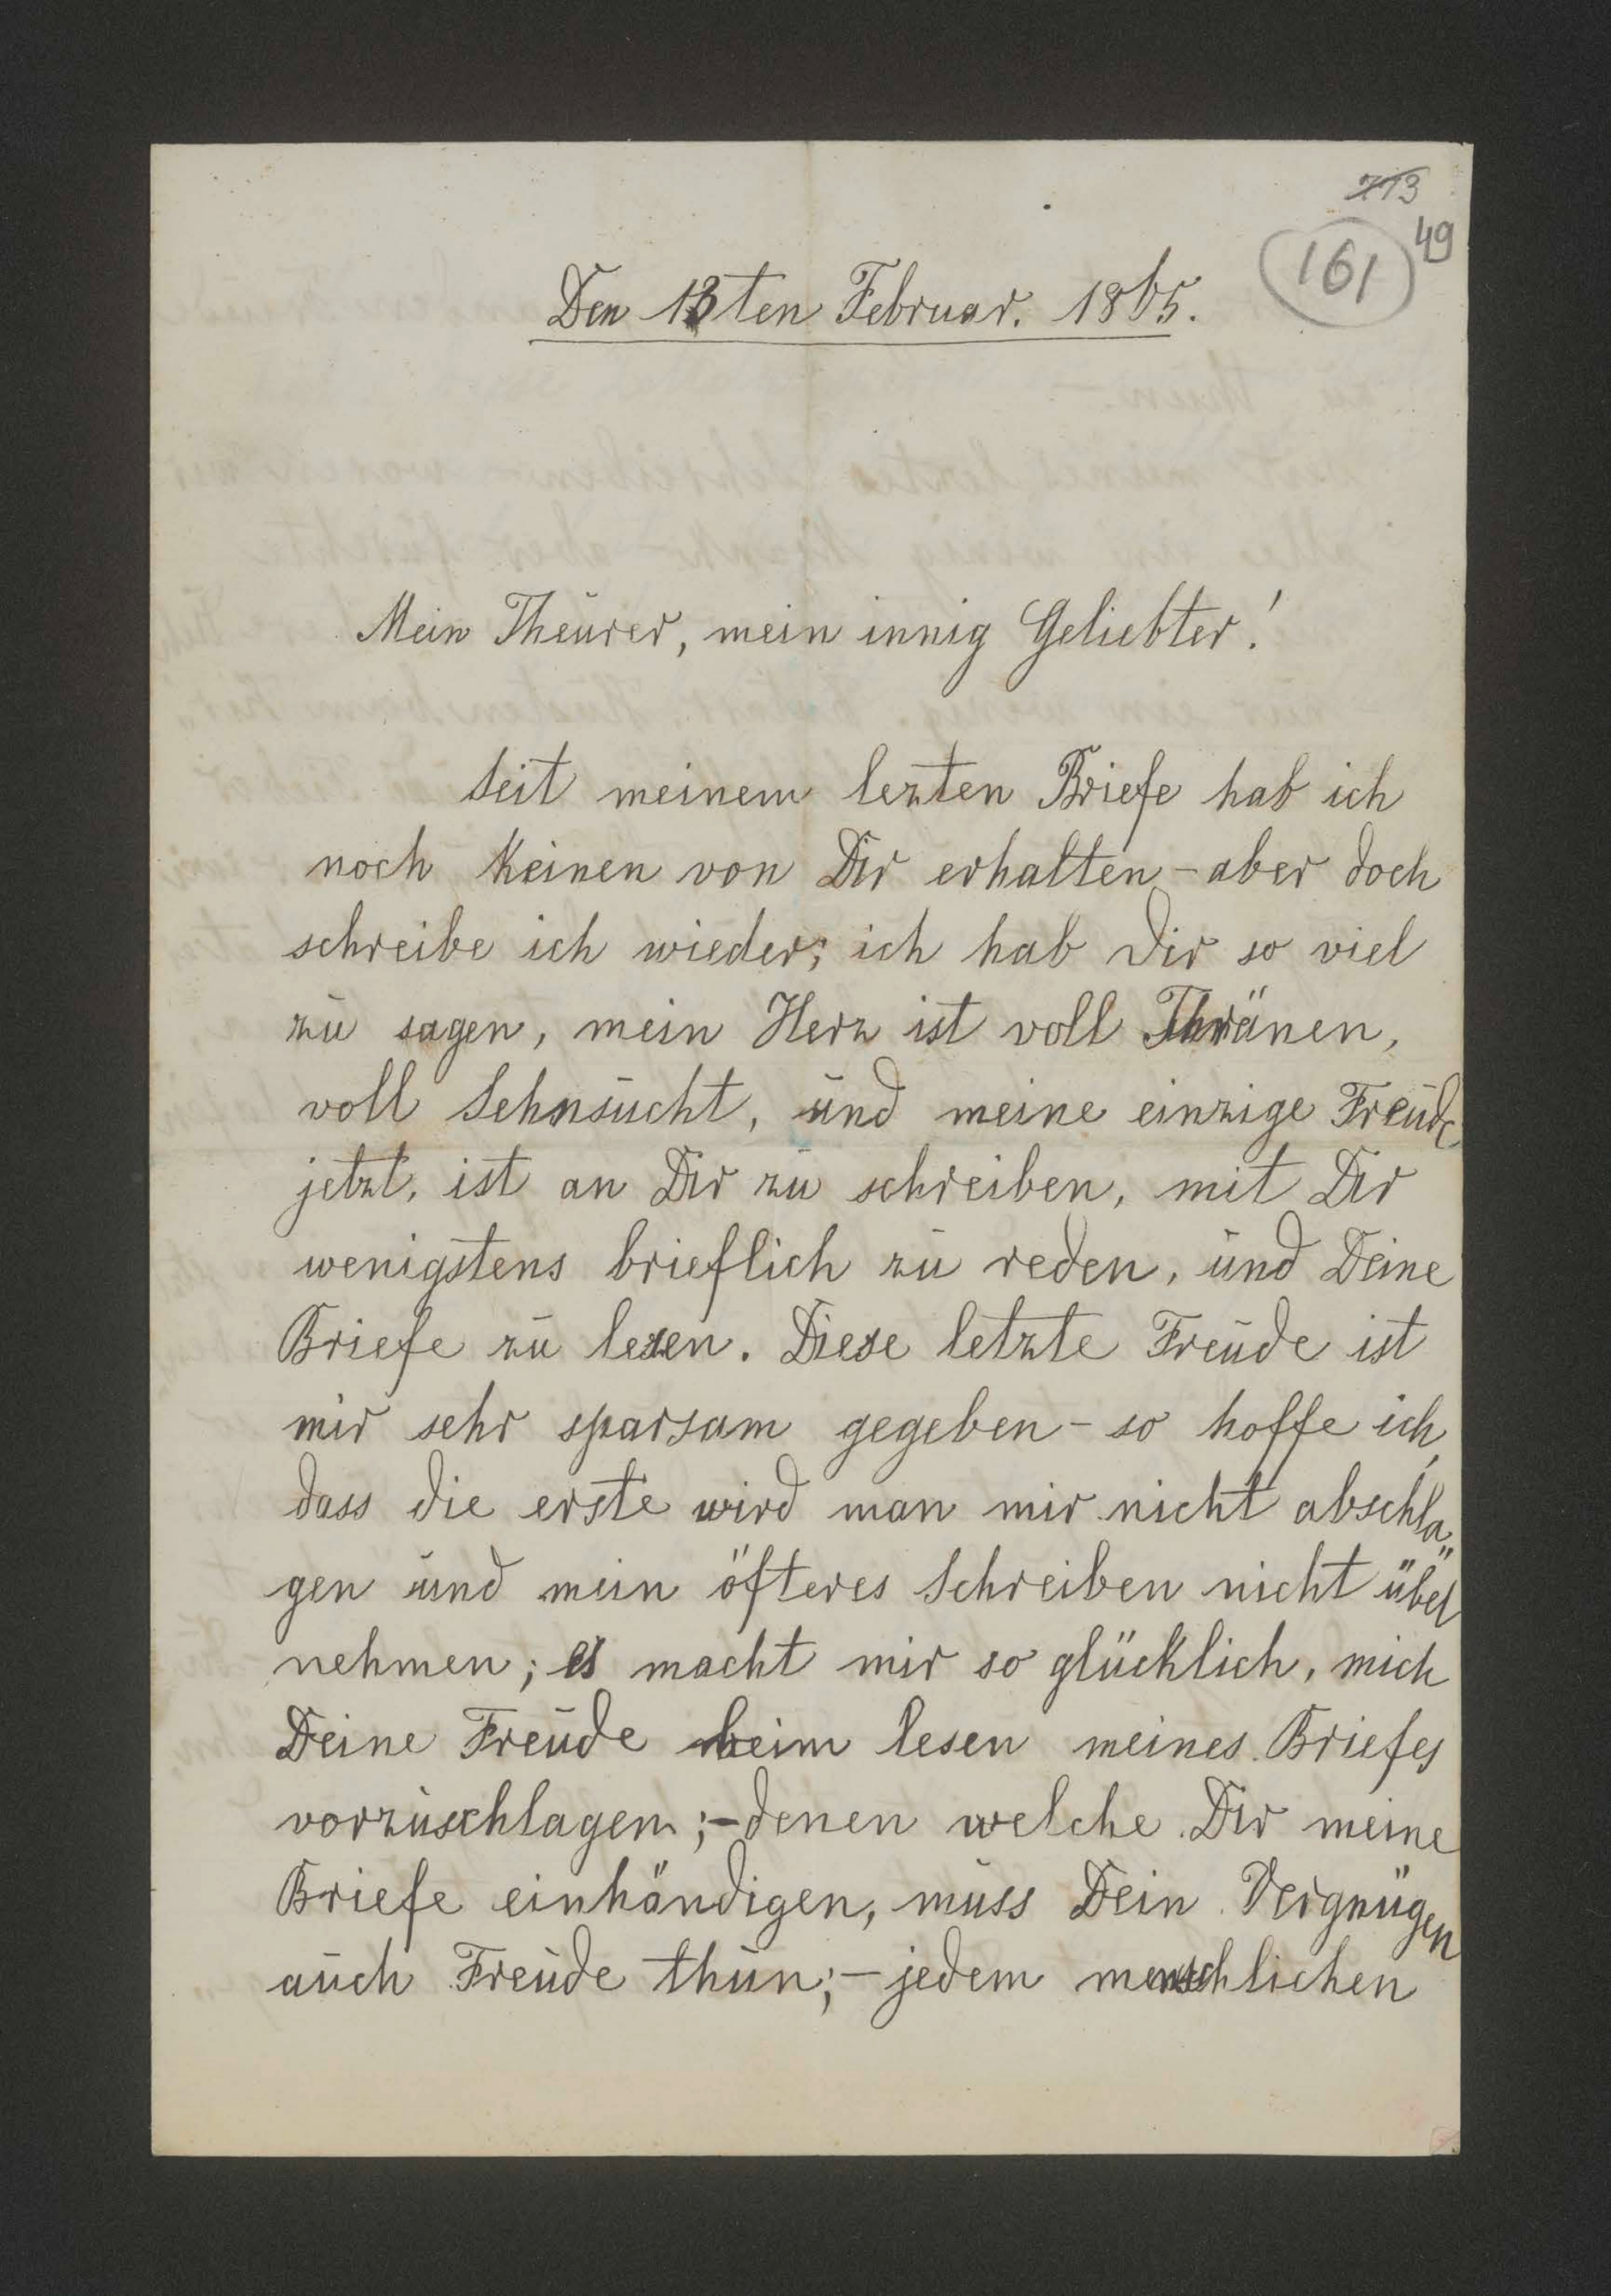 713
49
161
Den 13ten Februar. 1865.
Mein Theurer, mein innig Geliebter!
Seit meinem lezten Briefe hab ich
noch keinen von Dir erhalten – aber doch
schreibe ich wieder; ich hab Dir so viel
zu sagen, mein Herz ist voll Thränen,
voll Sehnsucht, und meine einzige Freude
jetzt, ist an Dir zu schreiben, mit Dir
wenigstens brieflich zu reden, und Deine
Briefe zu lesen. Diese letzte Freude ist
mir sehr sparsam gegeben – so hoffe ich,
dass die erste wird man mir nicht abschla„
gen und mein öfteres Schreiben nicht übel
nehmen; es macht mir so glücklich, mich
Deine Freude beim lesen meines Briefes
vorzuschlagen; – denen welche Dir meine
Briefe einhändigen, muss Dein Vergnügen
auch Freude thun; – jedem menschlichen